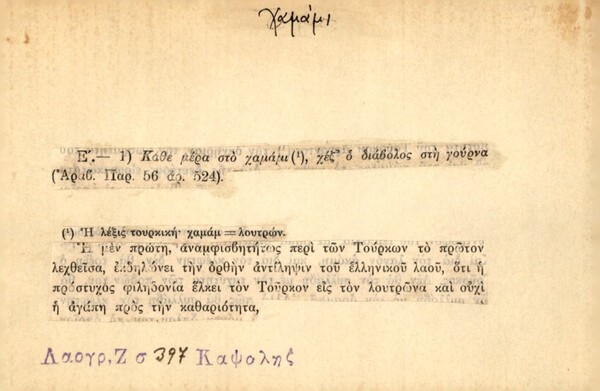 χαμάμι
Ε΄.— 1) Κάθε μέρα στὸ χαμάμι (¹), χέζ' ὁ διάβολος στὴ γούρνα
(Ἀραβ. Παρ. 56 ἀρ. 524).
(¹) Ἡ λέξις τουρκική· χαμάμ = λουτρών.
Ἡ μὲν πρώτη, ἀναμφισβητήτως περὶ τῶν Τούρκων τὸ πρῶτον
λεχθεῖσα, ἐκδηλώνει τὴν ὀρθὴν ἀντίληψιν τοῦ ἑλληνικοῦ λαοῦ, ὅτι ἡ
πρόστυχος φιληδονία ἕλκει τὸν Τοῦρκον εἰς τὸν λουτρῶνα καὶ οὐχὶ
ἡ ἀγάπη πρὸς τὴν καθαριότητα,
Λαογρ, Ζ σ 397 Καψαλης